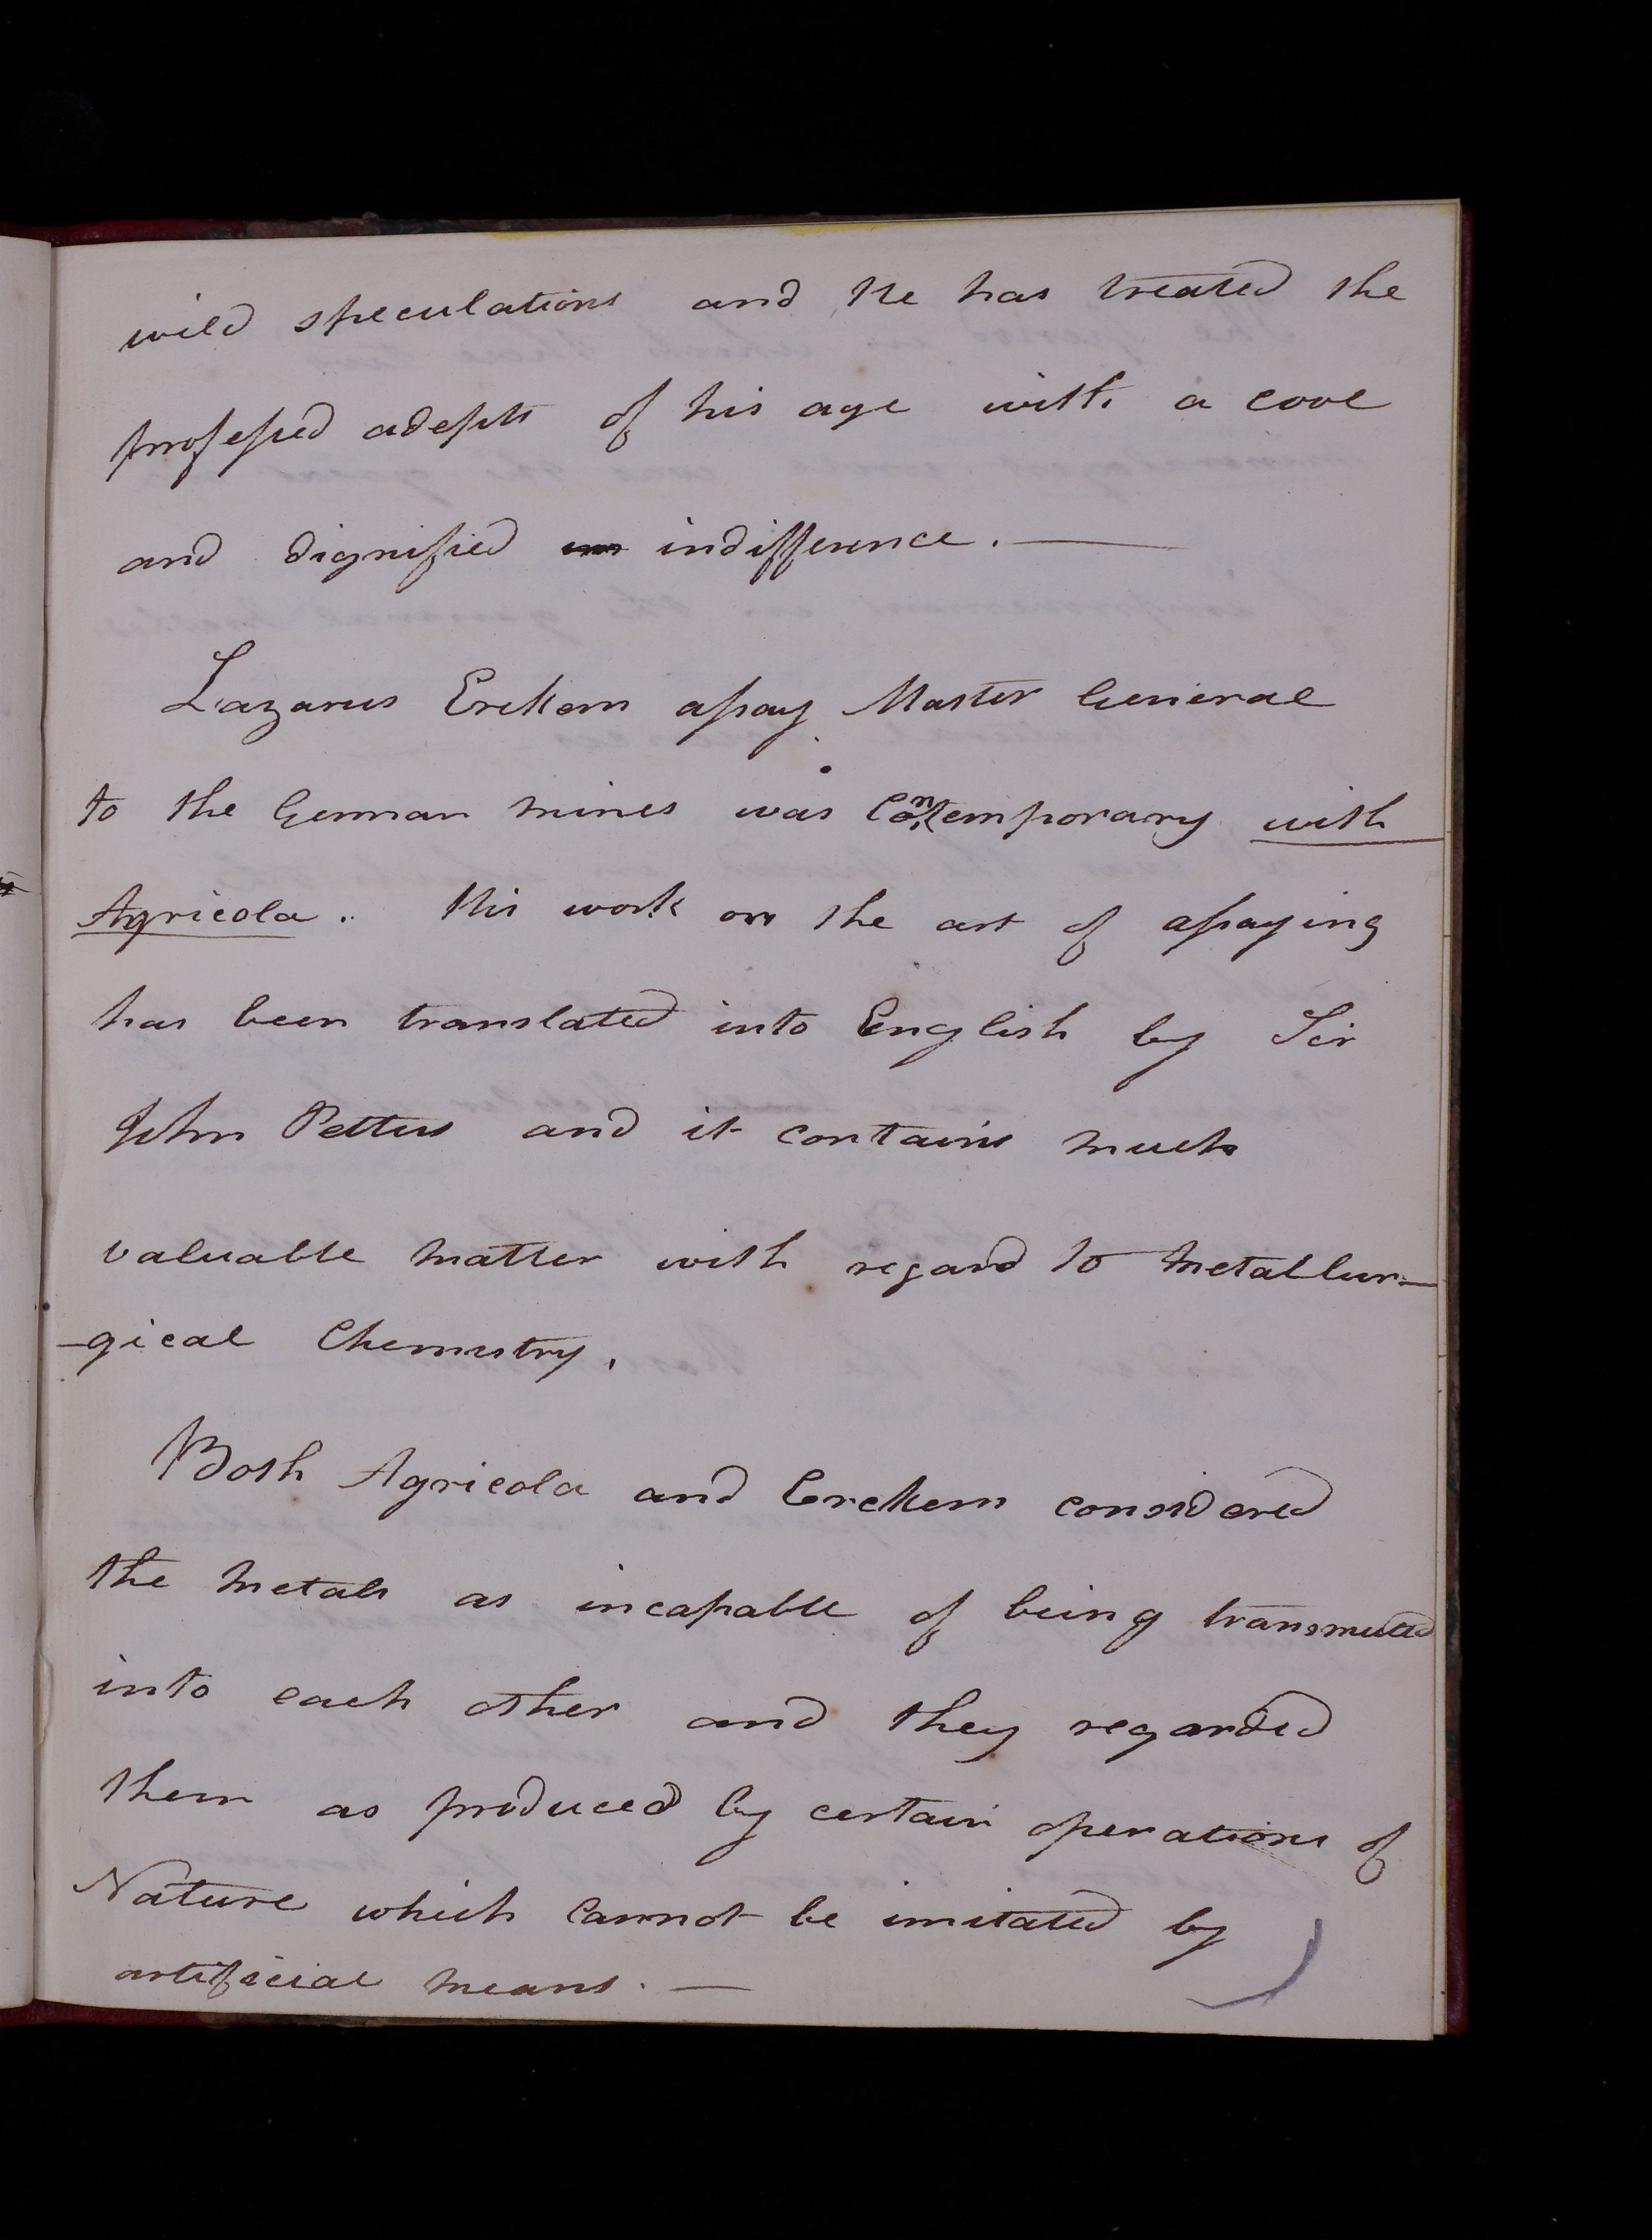 wild speculations and He has treated the
professed adepts of his age with a cool
and dignified indifference. —
Lazarus Erckern assay Master General
to the German mines was Contemporary with
Agricola. His work on the art of assaying
has been translated into English by Sir
John Pettus and it contains much
valuable matter with regard to Metallur-
-gical Chemistry.
Both Agricola and Erckern considered
the Metals as incapable of being transmuted
into each other and they regarded
them as produced by certain operations of
Nature which cannot be imitated by
artificial means. —